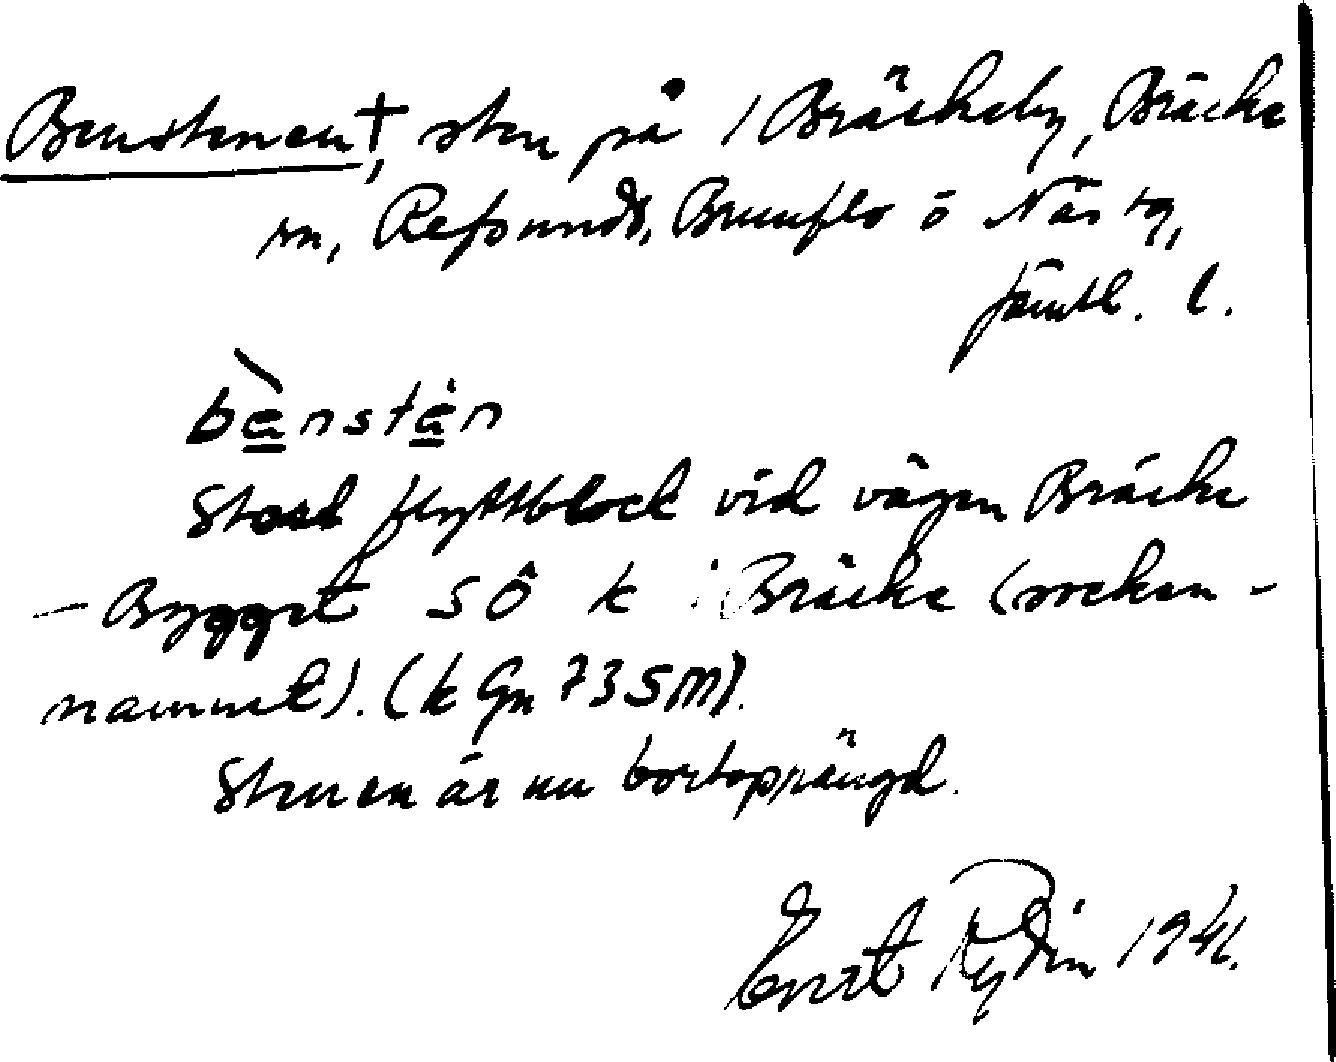 Benstenen†, sten på 1 Bräckeby, Bräcke
sn, Refsunds, Brunflo o Näs tg,
Jämtl. l.
bànstàn
Stort flyttblock vid vägen Bräcke
– Bygget SÖ k i Bräcke (socken-
namnet). (k Gn 73 SM).
Stenen är nu bortsprängd.
Ernst Rydin 1941.